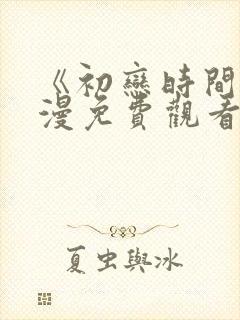 《初戀時間
漫免費觀看
夏虫與冰